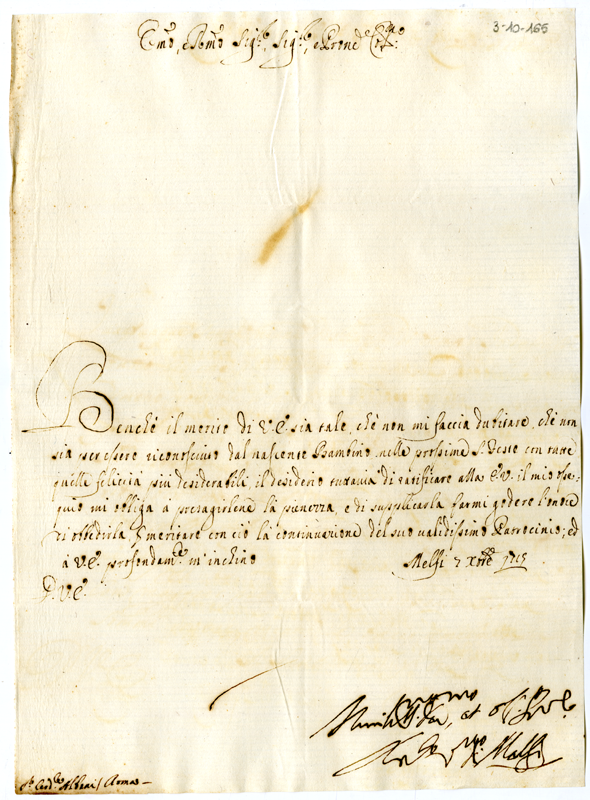 3-10-165
Em̃o, e Rem̃o Sig.re, Sig.re, e Prone Col.mo
Benche il merito di V.E. sia tale, che non mi faccia dubitare, che non
sia per essere riconosciuto dal nascente Bambino nelle prossime S. Feste con tutte
quelle felicità più desiderabili, il desiderio tuttavia di ratificare alla E.V. il mio osse-
quio mi obliga a presagirlene la pienezza, e di supplicarla farmi godere l'onore
di obbedirla, e meritare con ciò la continuazione del suo validissimo Patrocinio; ed
à V.E. profondam.te m'inchino
Melfi 7 Xbre 1715
D. V.E.
Humiliss.mo Ser.
Melfi
S.r Card.le Albani / Roma